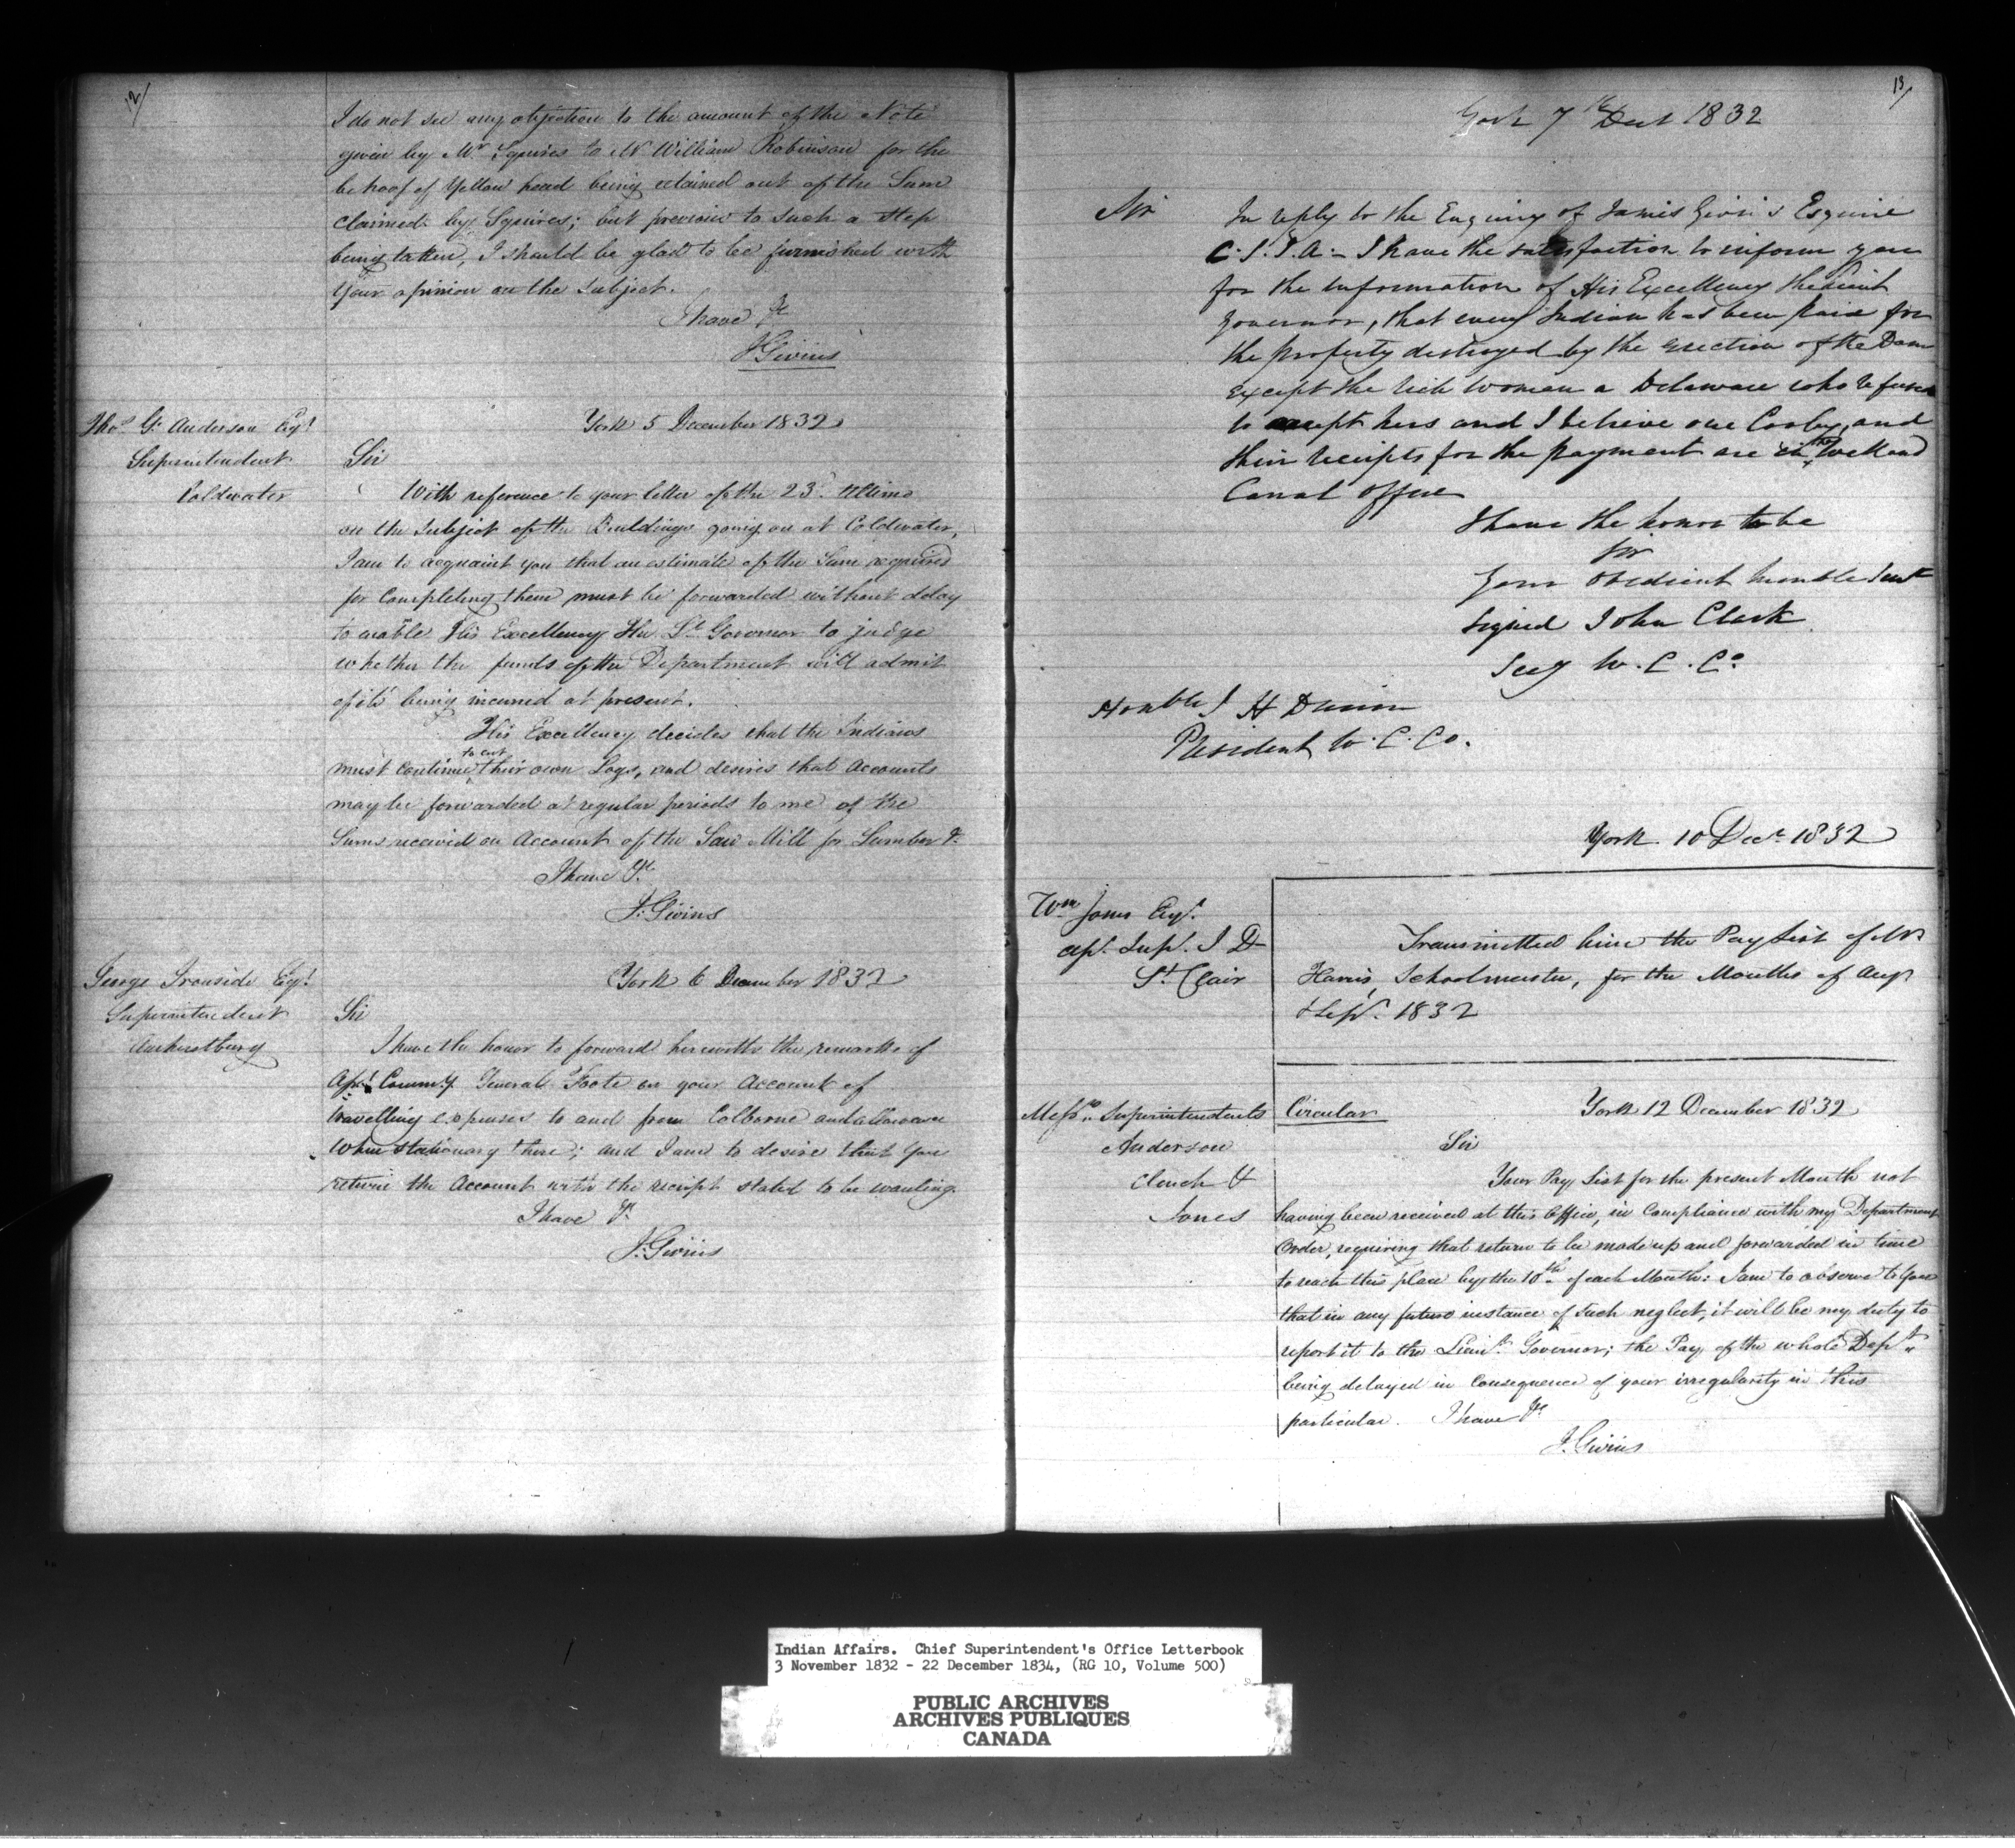 12/
I do not see any objection to the amount of the Note
given by Mr Squires to Mr William Robinson for the
behoof of Yellow head being retained out of the Sum
claimed by Squires; but previous to such a step
being taken, I should be glad to be furnished with
your opinion on the subject.
I have &c
J Givins
Thos G. Anderson Esqr
Superintendent
Coldwater
York 5 December 1832
Sir
With reference to your letter of the 23d. Ultimo
on the subject of the Buildings going on at Coldwater,
I am to acquaint you that an estimate of the Sum required
for Completing them must be forwarded without delay
to enable His Excellency The Lt Governor to judge
whether the funds of the Department will admit
of its being incurred at present.
His Excellency decides that the Indians
must continue to cut their own Logs, and desires that Accounts
may be forwarded at regular periods to me of the
Sums received on Account of the Saw Mill for Lumber &c
I have &c.
J. Givins
George Ironside Esqr
Superintendent
Amherstburg
York 6 December 1832
Sir
I have the honor to forward herewith the remarks of
Asst. Commy. General Foote on your Account of
travelling expenses to and from Colborne and allowance
when stationary there; and I am to desire that you
return the Account with the receipt stated to be wanting.
I have &c
J. Givins
13/
York 7th Dect 1832
Sir
In reply to the Enquiry of James Givins Esquire
C.S.I.A. - I have the satisfaction to inform you
for the information of His Excellency the Lieut
Governor, that every Indian has been paid for
the property destroyed by the erection of the Dam
except the rich woman a Delaware who refused
to accept hers and I believe one and
their receipts for the payment are in the Welland
Canal Office
I have the honor to be
Sir
Your obedient humble Sert
signed John Clark
Secy W. C. Co.
Honble J H Dunn
President W. C. Co.
York 10 Decr 1832
Wm Jones Esqr.
Ast. Supt. I D
St. Clair
Transmitted him the Pay List of Mr
Harris, Schoolmaster, for the Months of Augt
& Sept. 1832
Messrs. Superintendents
Anderson
Clench &
Jones
Circular
York 12 December 1832
Sir
Your Pay List for the present Month not
having been received at this Office, in Compliance with my Department
Order, requiring that return to be made up and forwarded in time
to reach this place by the 10th of each Month: I am to observe to you
that in any future instance of such neglect, it will be my duty to
report it to the Lieut. Governor; the Pay of the whole Dept.
being delayed in Consequence of your irregularity in this
particular. I have &c
J. Givins
Indian Affairs. Chief Superintendent's Office Letterbook
3 November 1832 - 22 December 1834, (RG 10, Volume 500)
PUBLIC ARCHIVES
ARCHIVES PUBLIQUES
CANADA